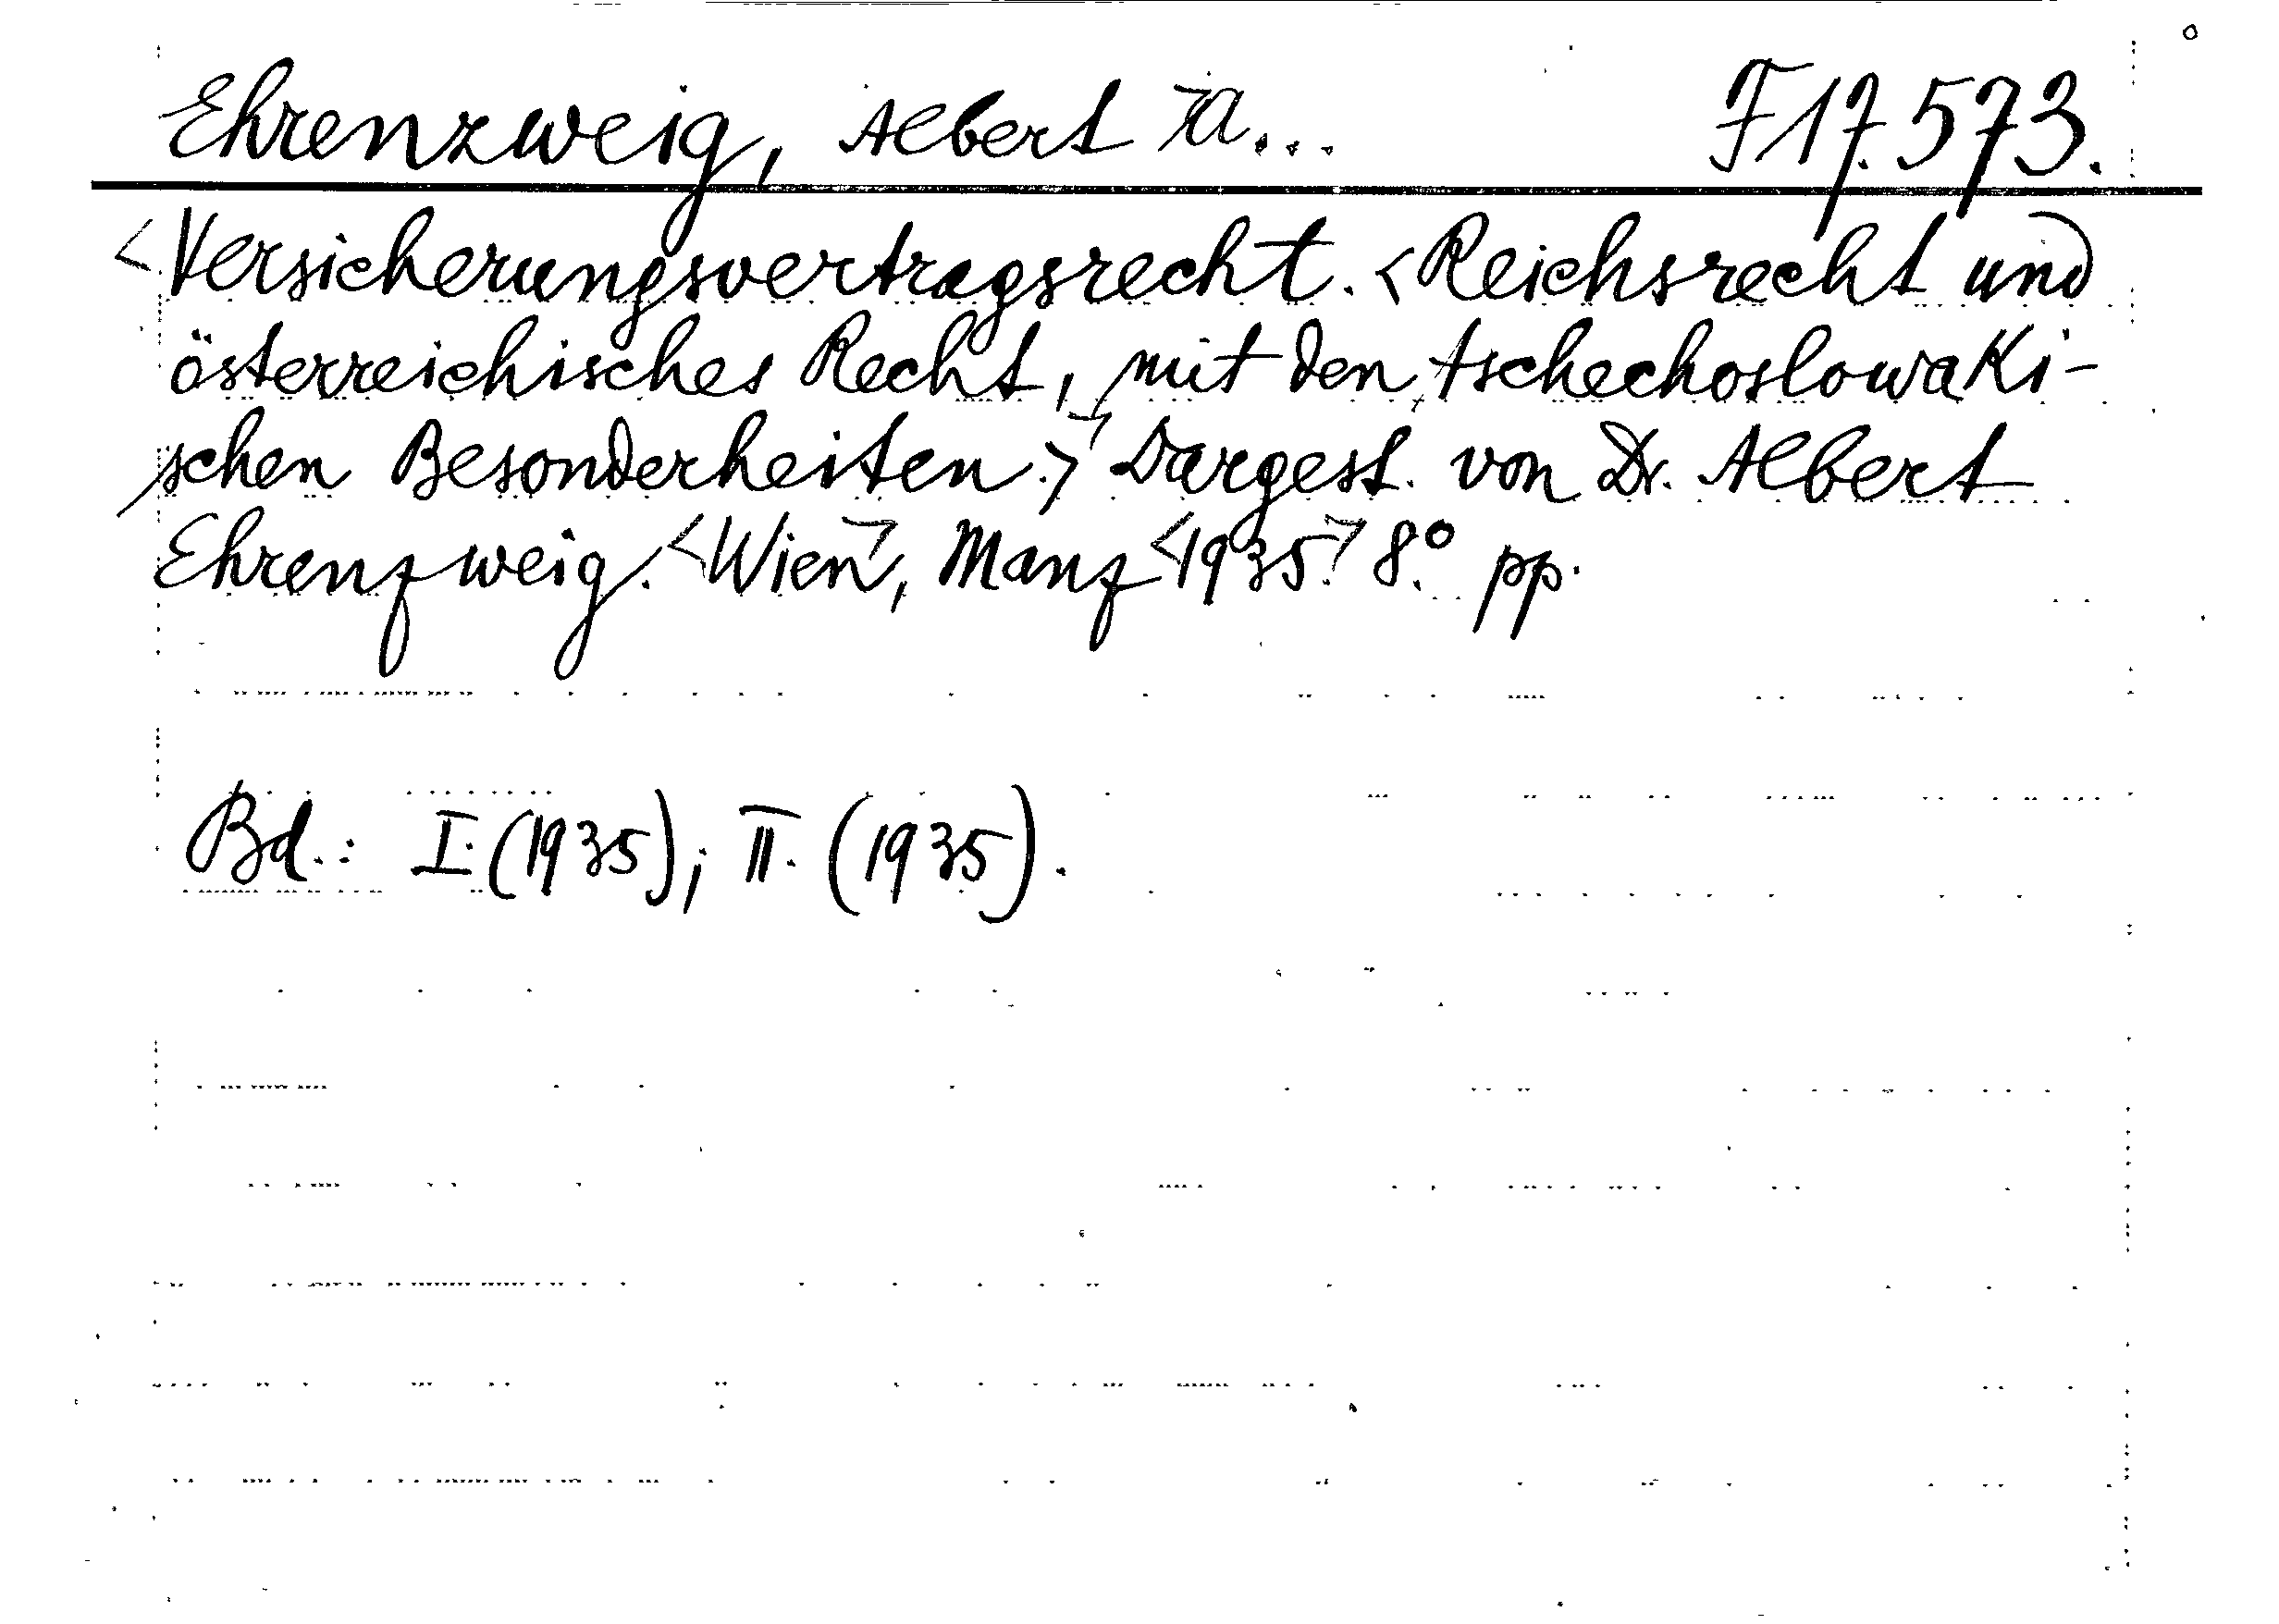 Ehrenzweig, Albert A... F 17.573.
<Versicherungsvertragsrecht. <Reichsrecht und
österreichisches Recht, mit den tschechoslowaki-
schen Besonderheiten.> Dargest. von Dr. Albert
Ehrenzweig. <Wien>, Manz <1935.> 8.° pp.
Bd.: I. (1935); II. (1935).